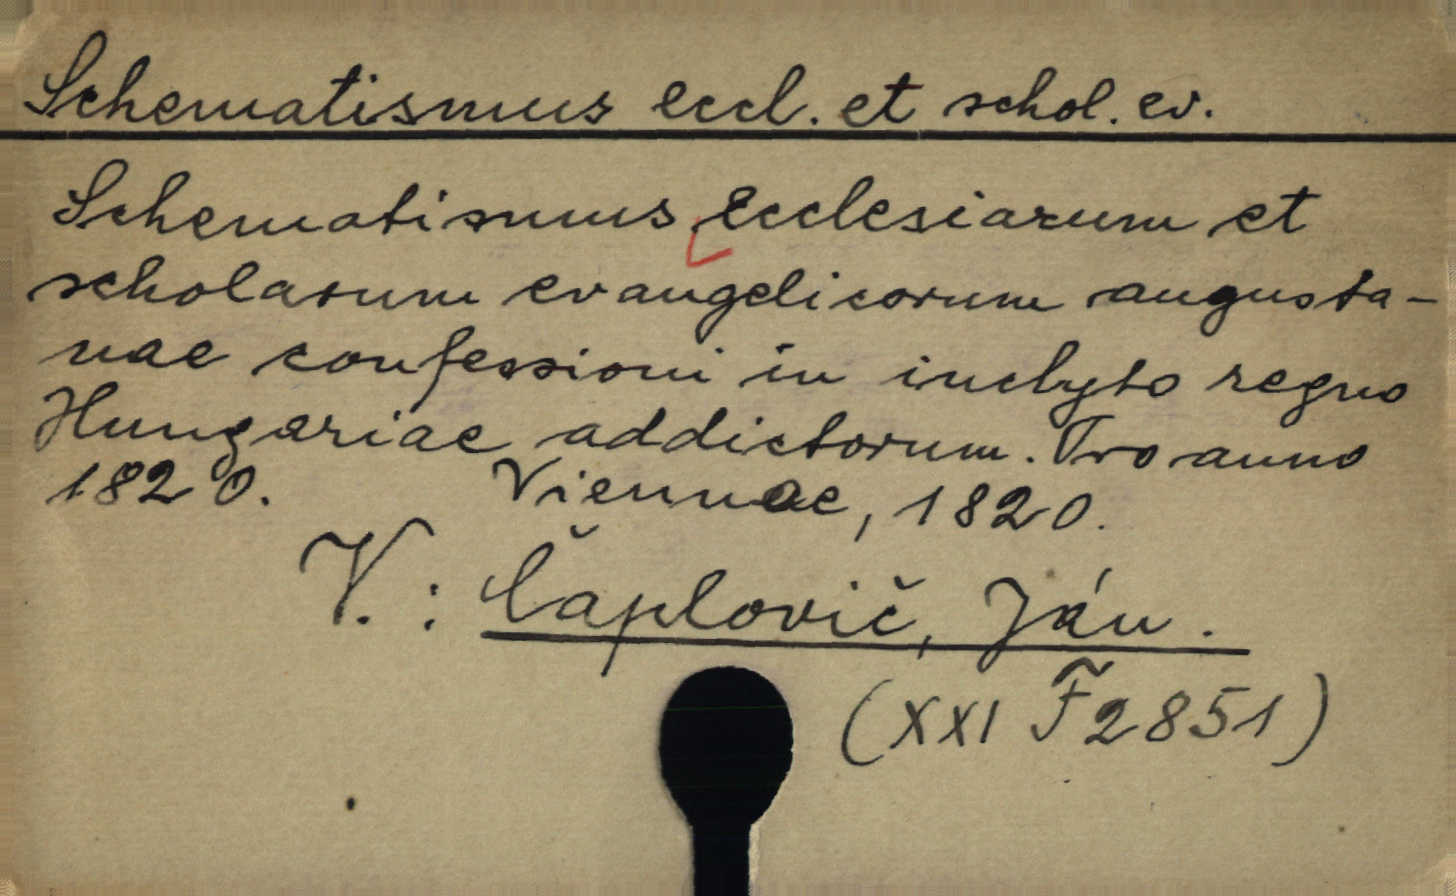 Schematismus eccl. et schol. ev.
Schematismus Ecclesiarum et
scholarum evangelicorum augusta-
nae confessioni in inclyto regno
Hungariae addictorum. Pro anno
1820. Viennae, 1820.
V.: Čaplovič, Ján.
(XXI F 2851)